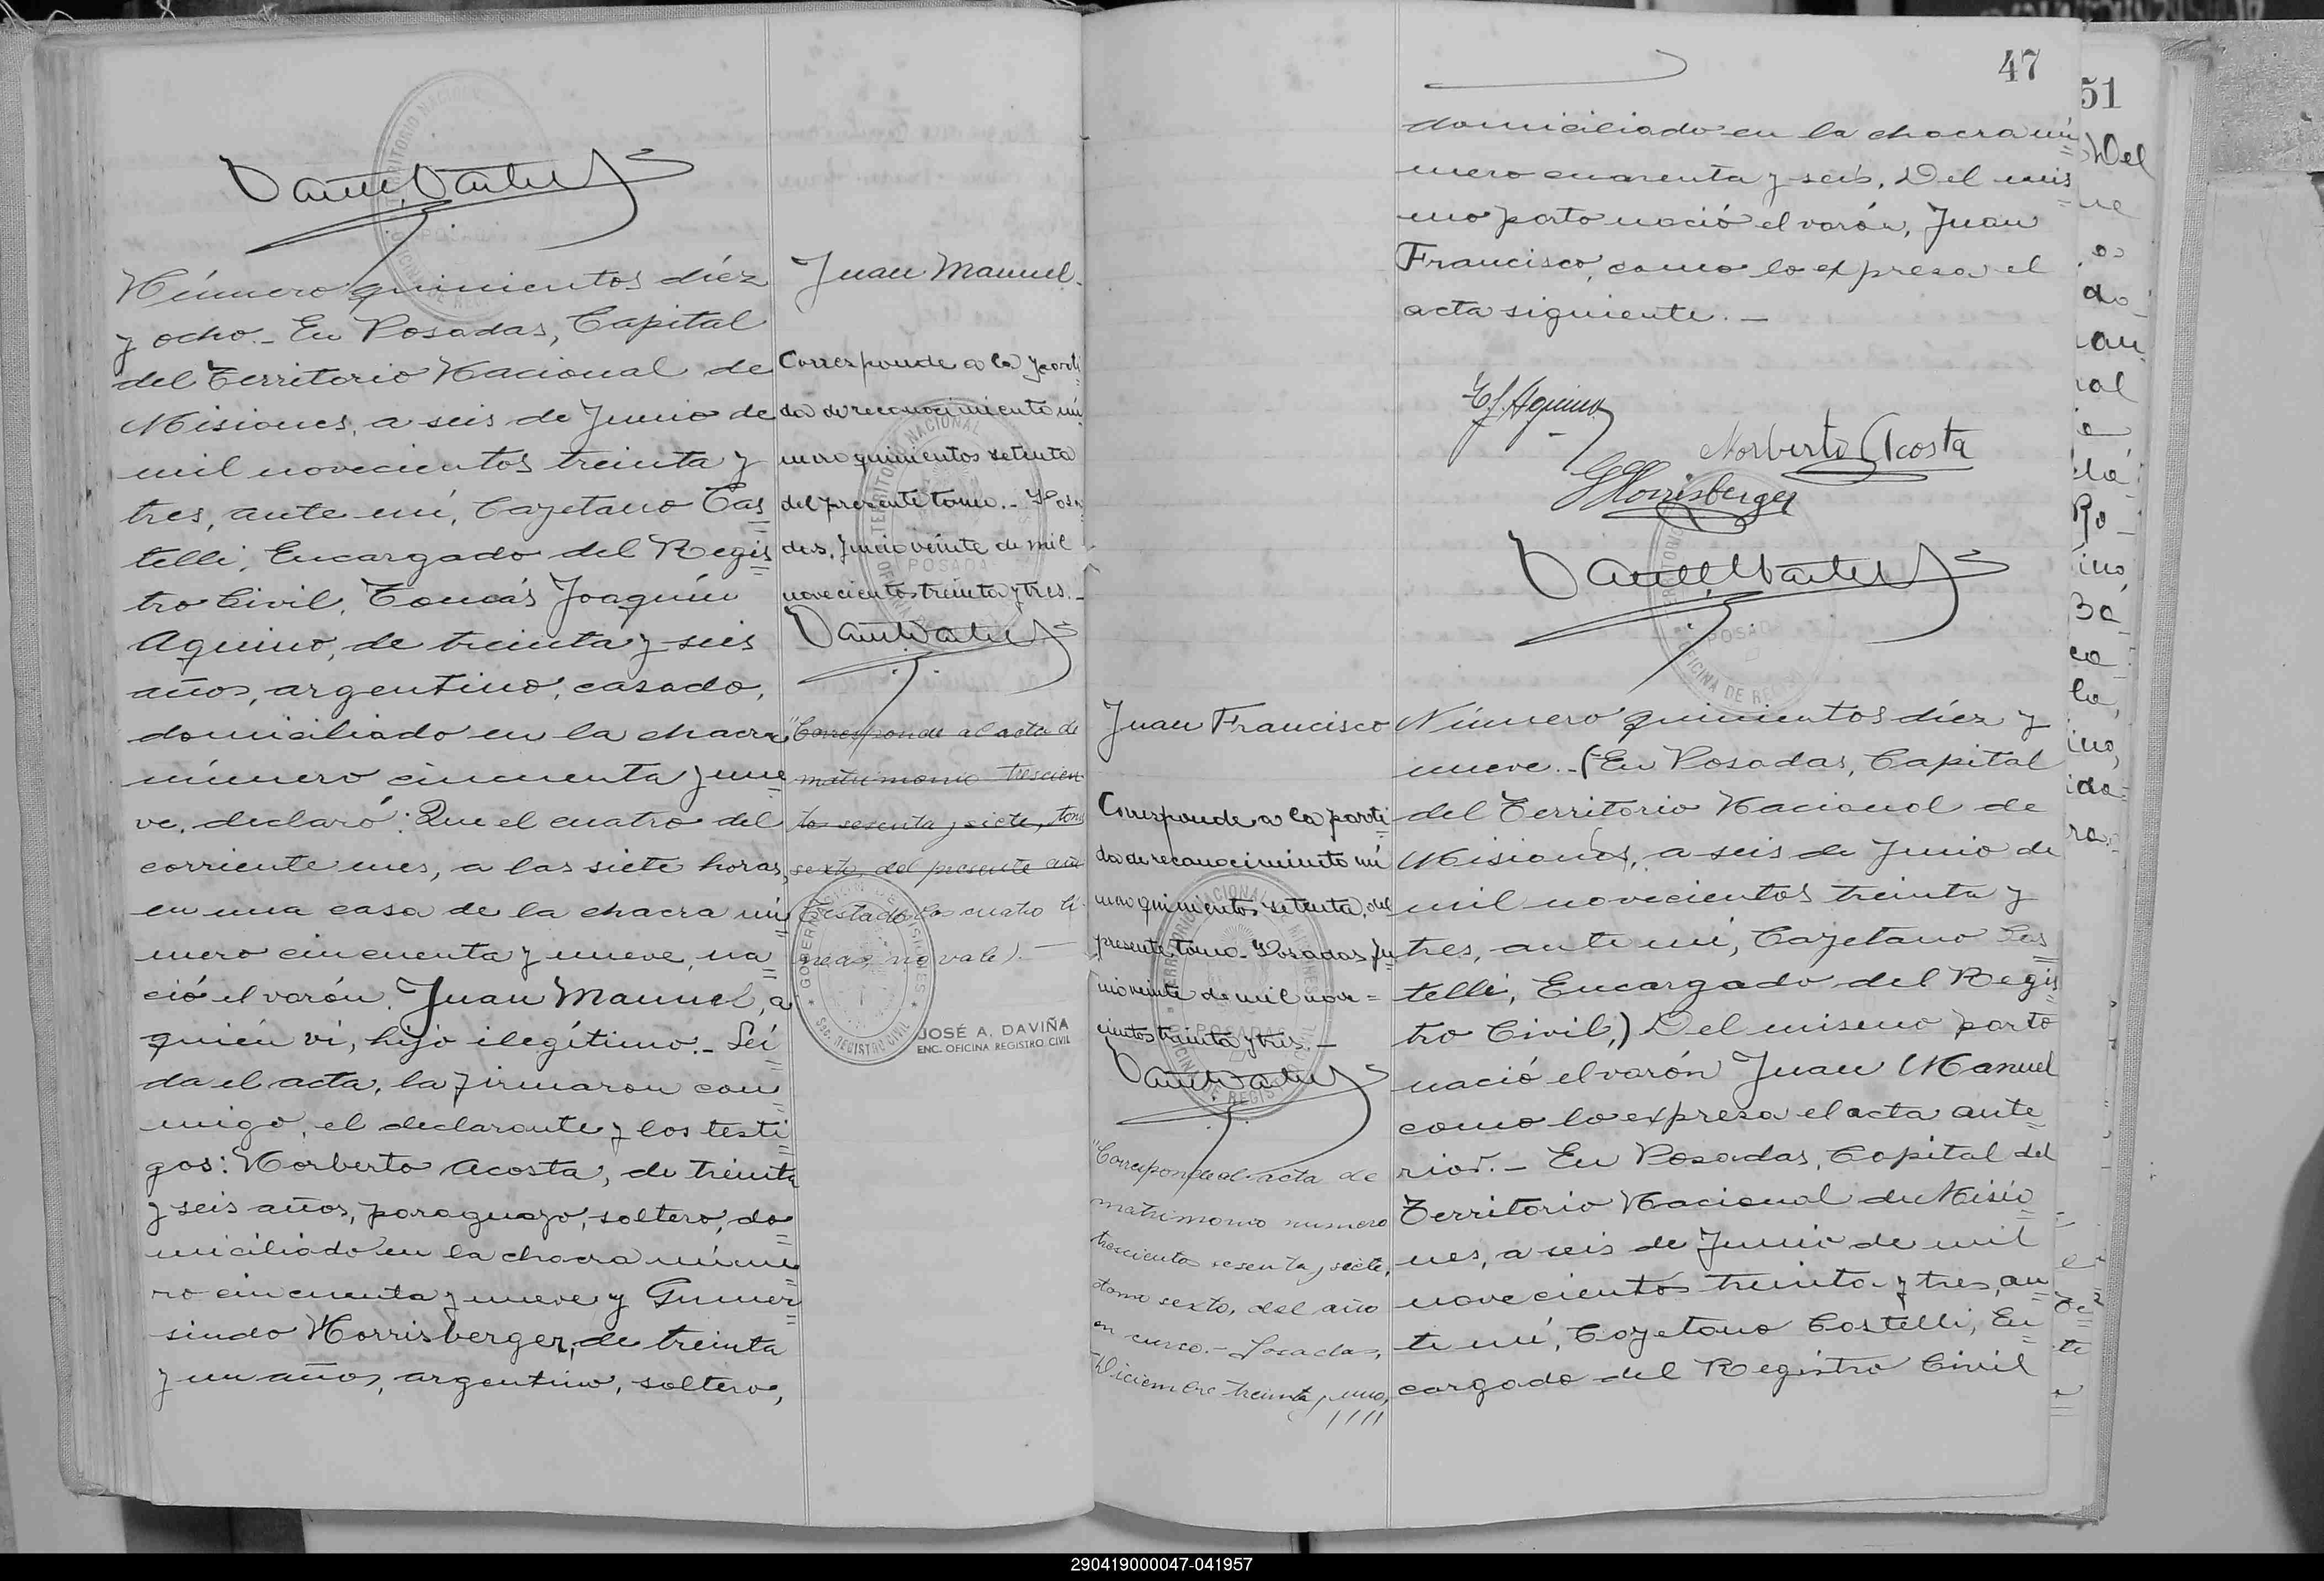 Número quinientos diez
y ocho._ En Posadas, Capital
del Territorio Nacional de
Misiones, a seis de Junio de
mil novecientos treinta y
tres, ante mí, Cayetano Cas
telli, Encargado del Regis
tro Civil, Tomás Joaquín
Aquino, de treinta y seis
años, argentino, casado,
domiciliado en la chacra
número cincuenta y nue
ve, declaró: Que el cuatro del
corriente mes, a las siete horas,
en una casa de la chacra nú
mero cincuenta y nueve, na
ció el varón, Juan Manuel, a
quién vi, hijo ilegítimo._ Leí
da el acta, la firmaron con
migo, el declarante y los testi
gos: Norberto Acosta, de treinta
y seis años, paraguayo, soltero, do
miciliado en la chacra núme
ro cincuenta y nueve y Gumer
sindo Horrisberger, de treinta
y un años, argentino, soltero,
Juan Manuel.
Corresponde a la parti
da de reconocimiento nú
mero quinientos setenta
del presente tomo._ Posa
das, Junio veinte de mil
novecientos treinta y tres._
"Corresponde al acta de
matrimonio trescien
tos sesenta y siete, tomo
sexto, del presente año
Testado los cuatro lí
neas, no vale).
GOBERNACION DE MISIONES
SEC. REGISTRO CIVIL
JOSÉ A. DAVIÑA
ENC. OFICINA REGISTRO CIVIL
47
domiciliado en la chacra nú
mero cuarenta y seis. Del mis
mo parto nació el varón, Juan
Francisco, como lo expresa el
acta siguiente._
T. J. Aquino
Norberto Acosta
GHorrisberger
Juan Francisco
Corresponde a la parti
da de reconocimiento nú
mero quinientos setenta, del
presente tomo_ Posadas, Ju
nio veinte de mil nove=
cientos treinta y tres._
"Corresponde al acta de
matrimonio número
trescientos sesenta y siete,
tomo sexto, del año
en curso.- Posadas,
Diciembre treinta y uno,
////
Número quinientos diez y
nueve._ (En Posadas, Capital
del Territorio Nacional de
Misiones, a seis de Junio de
mil novecientos treinta y
tres, ante mí, Cayetano Cas
telli, Encargado del Regis
tro Civil,) Del mismo parto
nació el varón Juan Manuel
como lo expresa el acta ante
rior._ En Posadas, Capital del
Territorio Nacional de Misio
nes, a seis de Junio de mil
novecientos treinta y tres, an
te mí, Cayetano Castelli, En
cargado del Registro Civil
51
290419000047-041957